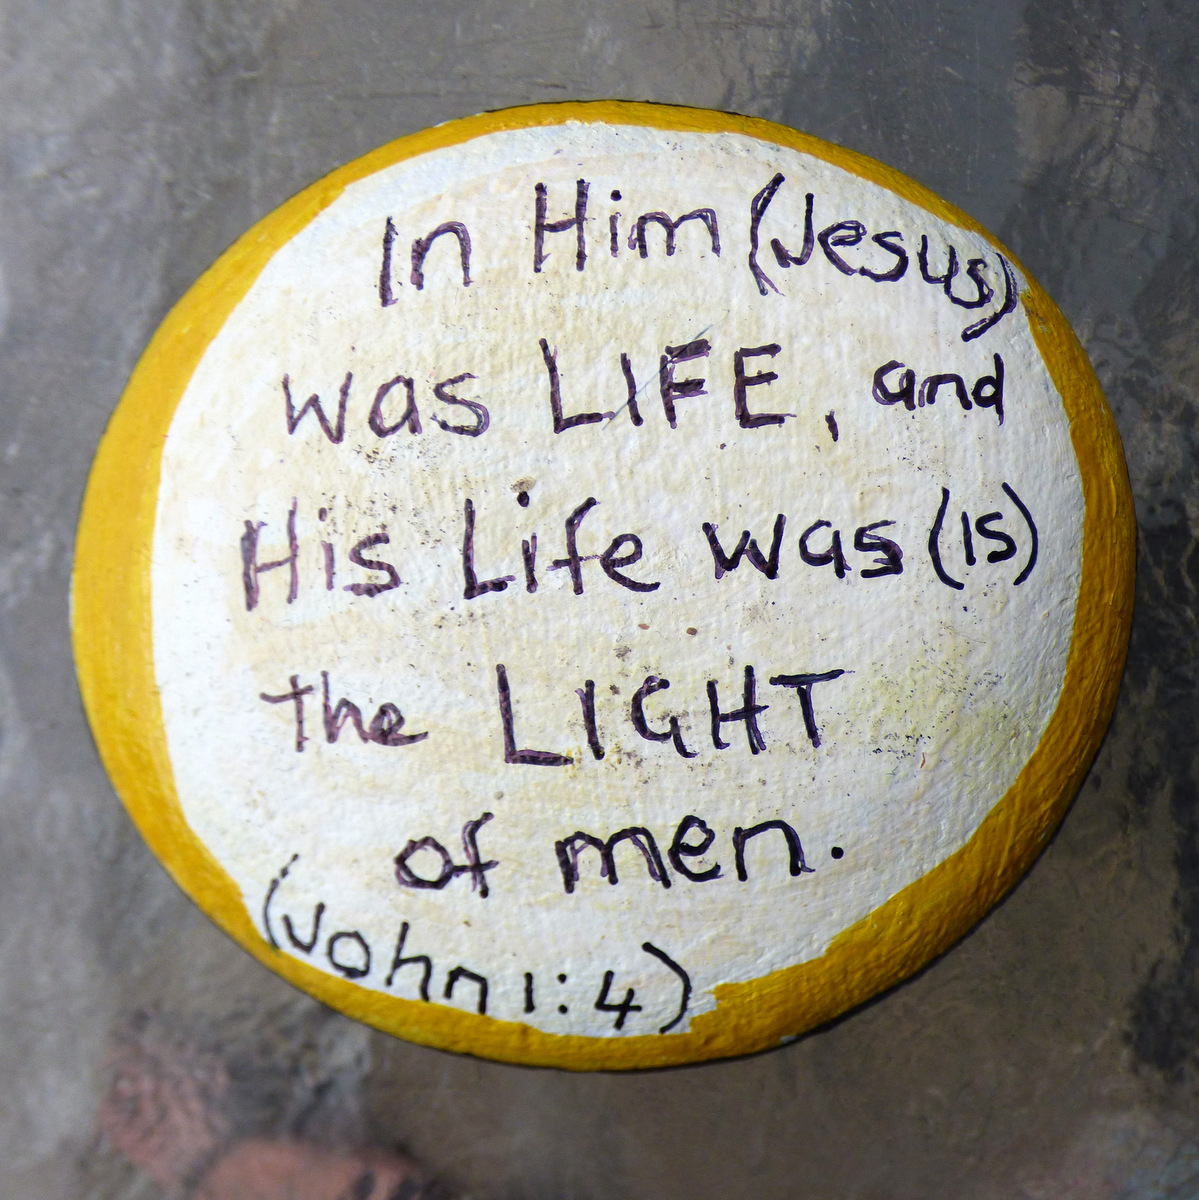 In Him (Jesus)
was LIFE, and
His Life was (is)
the LIGHT
of men.
(John 1:4)